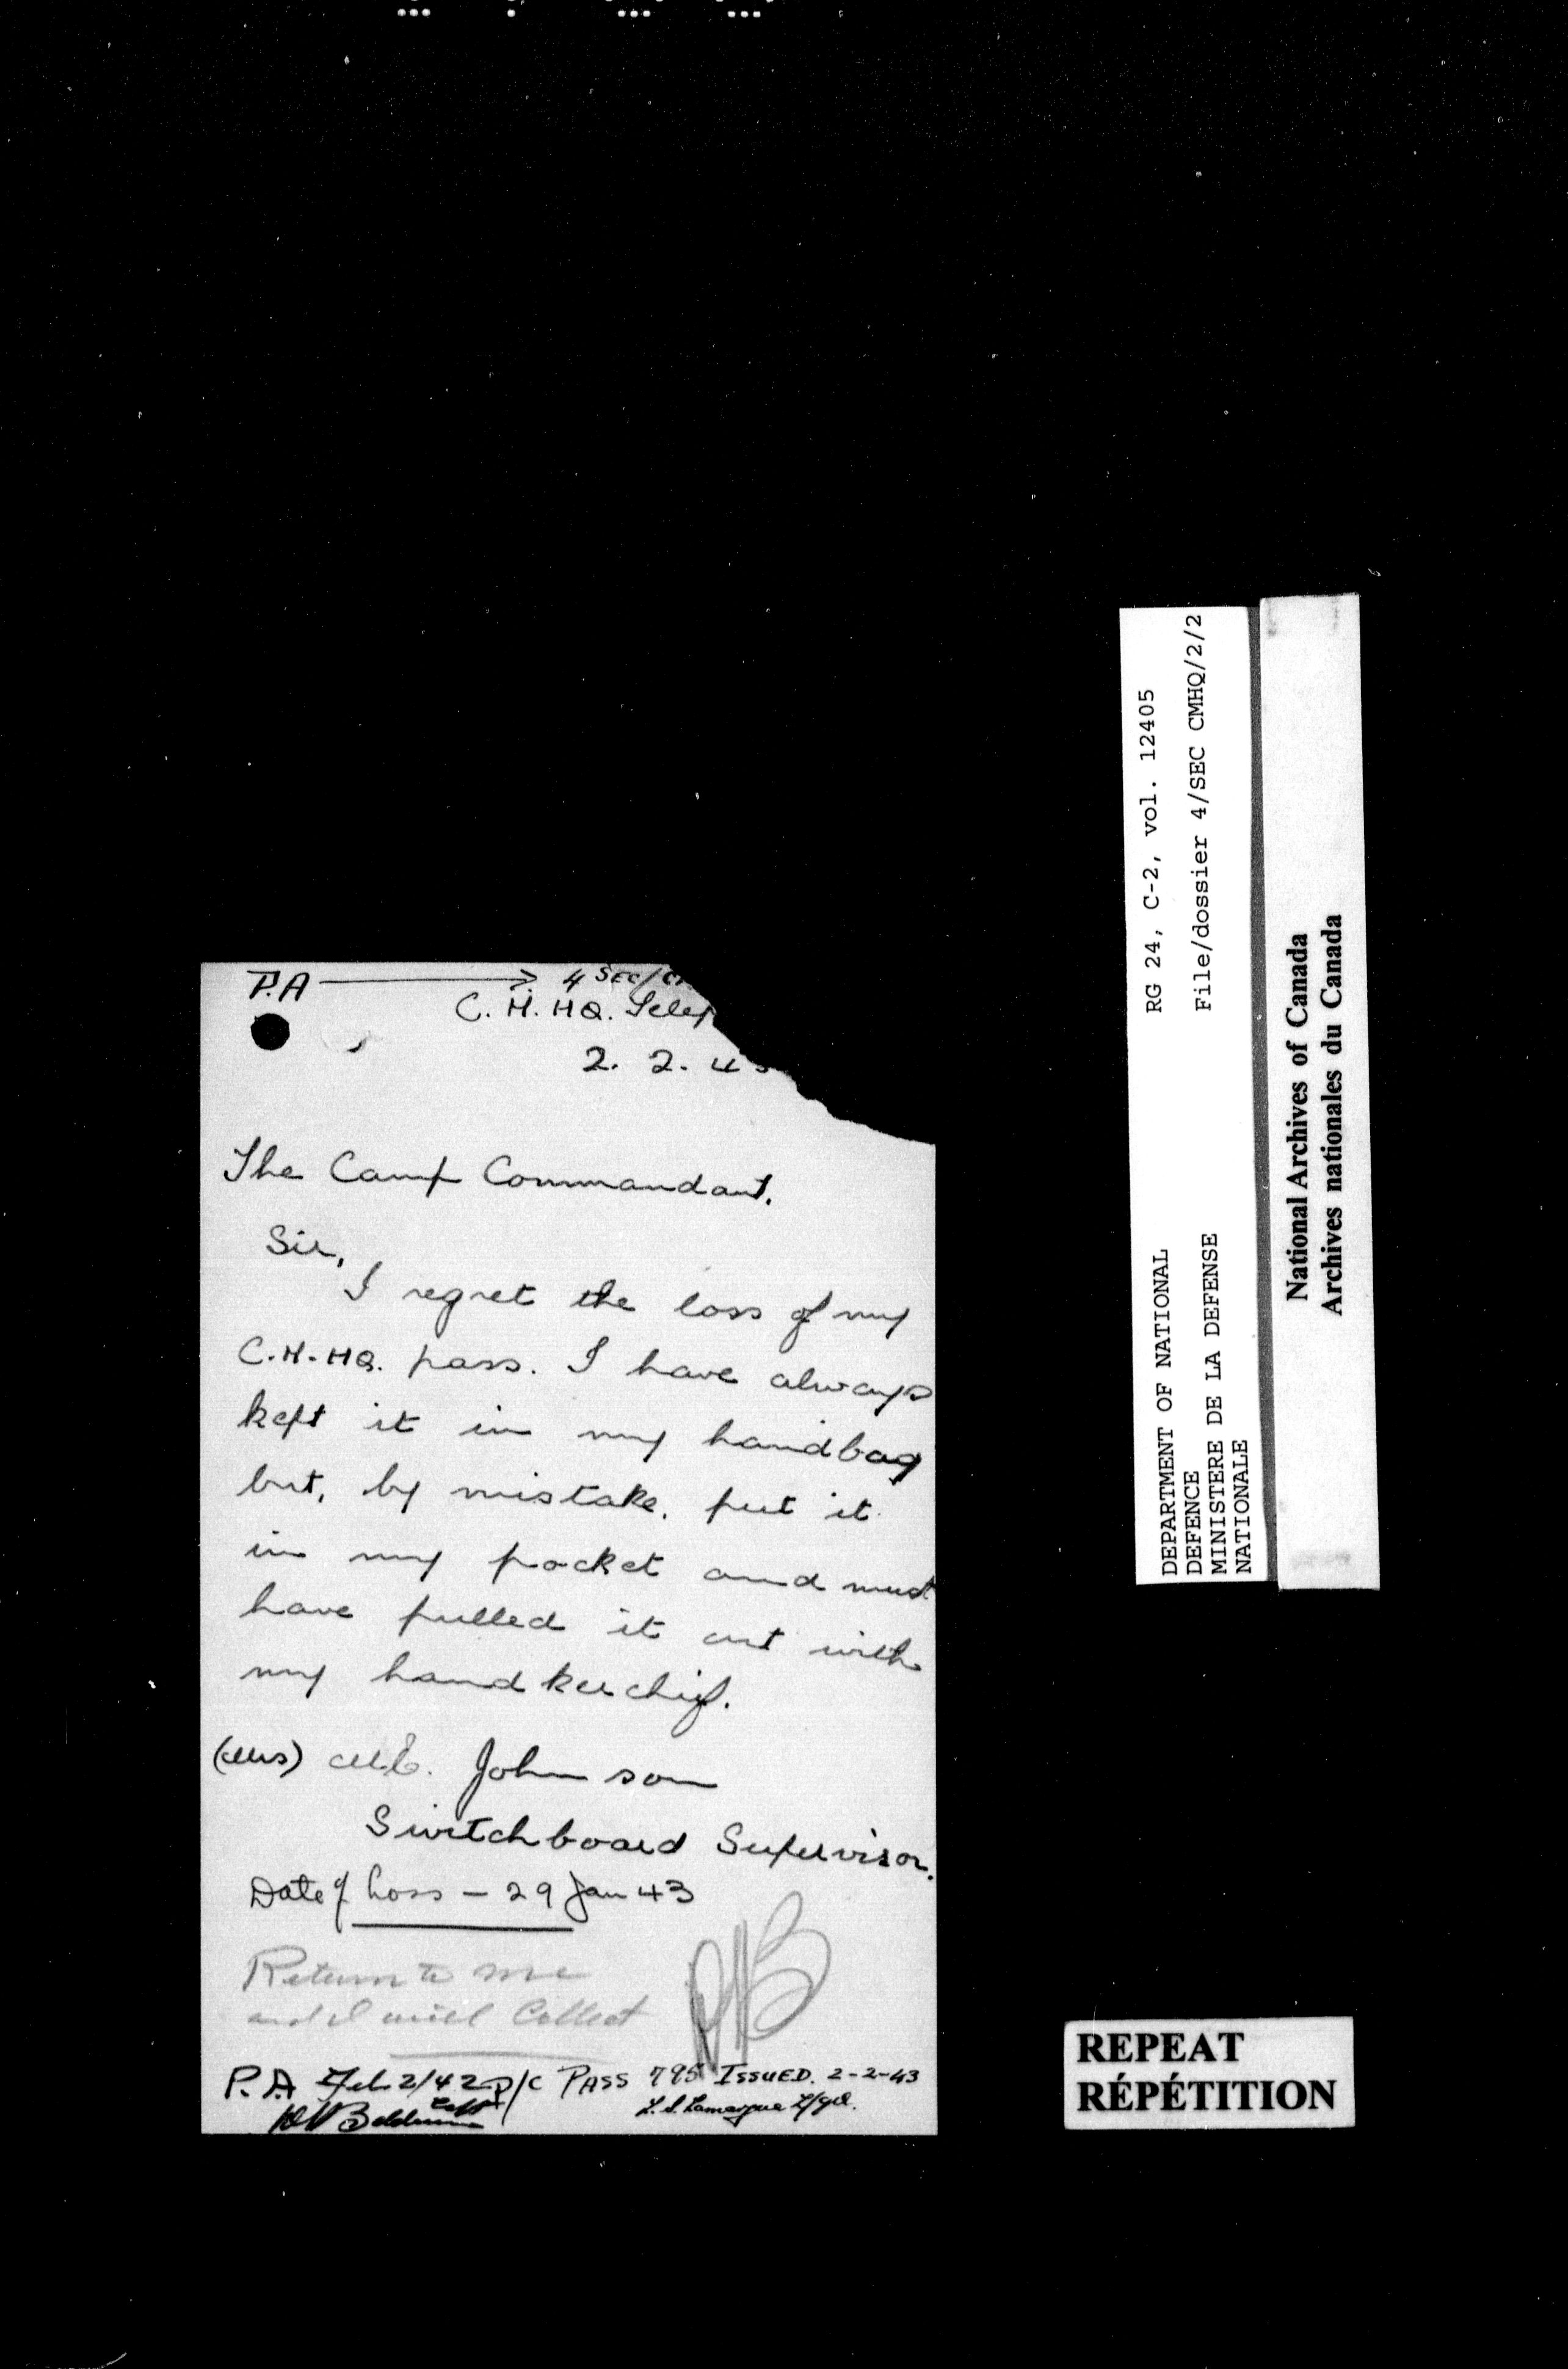 P.A → 4 SEC/CM
C. M. HQ. Telep
2. 2. 43
The Camp Commandant.
Sir,
I regret the loss of my
C.M.HQ. pass. I have always
kept it in my handbag
but, by mistake, put it
in my pocket and must
have pulled it out with
my handkerchief.
(Mrs) M.E. Johnson
Switchboard Supervisor.
Date of Loss - 29 Jan 43
Return to me
and I will Collect
P.A Feb 2/42 P/C PASS 795 ISSUED. 2-2-43
Baldwin Capt
RG 24, C-2, vol. 12405
File/dossier 4/SEC CMHQ/2/2
DEPARTMENT OF NATIONAL
DEFENCE
MINISTERE DE LA DEFENSE
NATIONALE
National Archives of Canada
Archives nationales du Canada
REPEAT
RÉPÉTITION